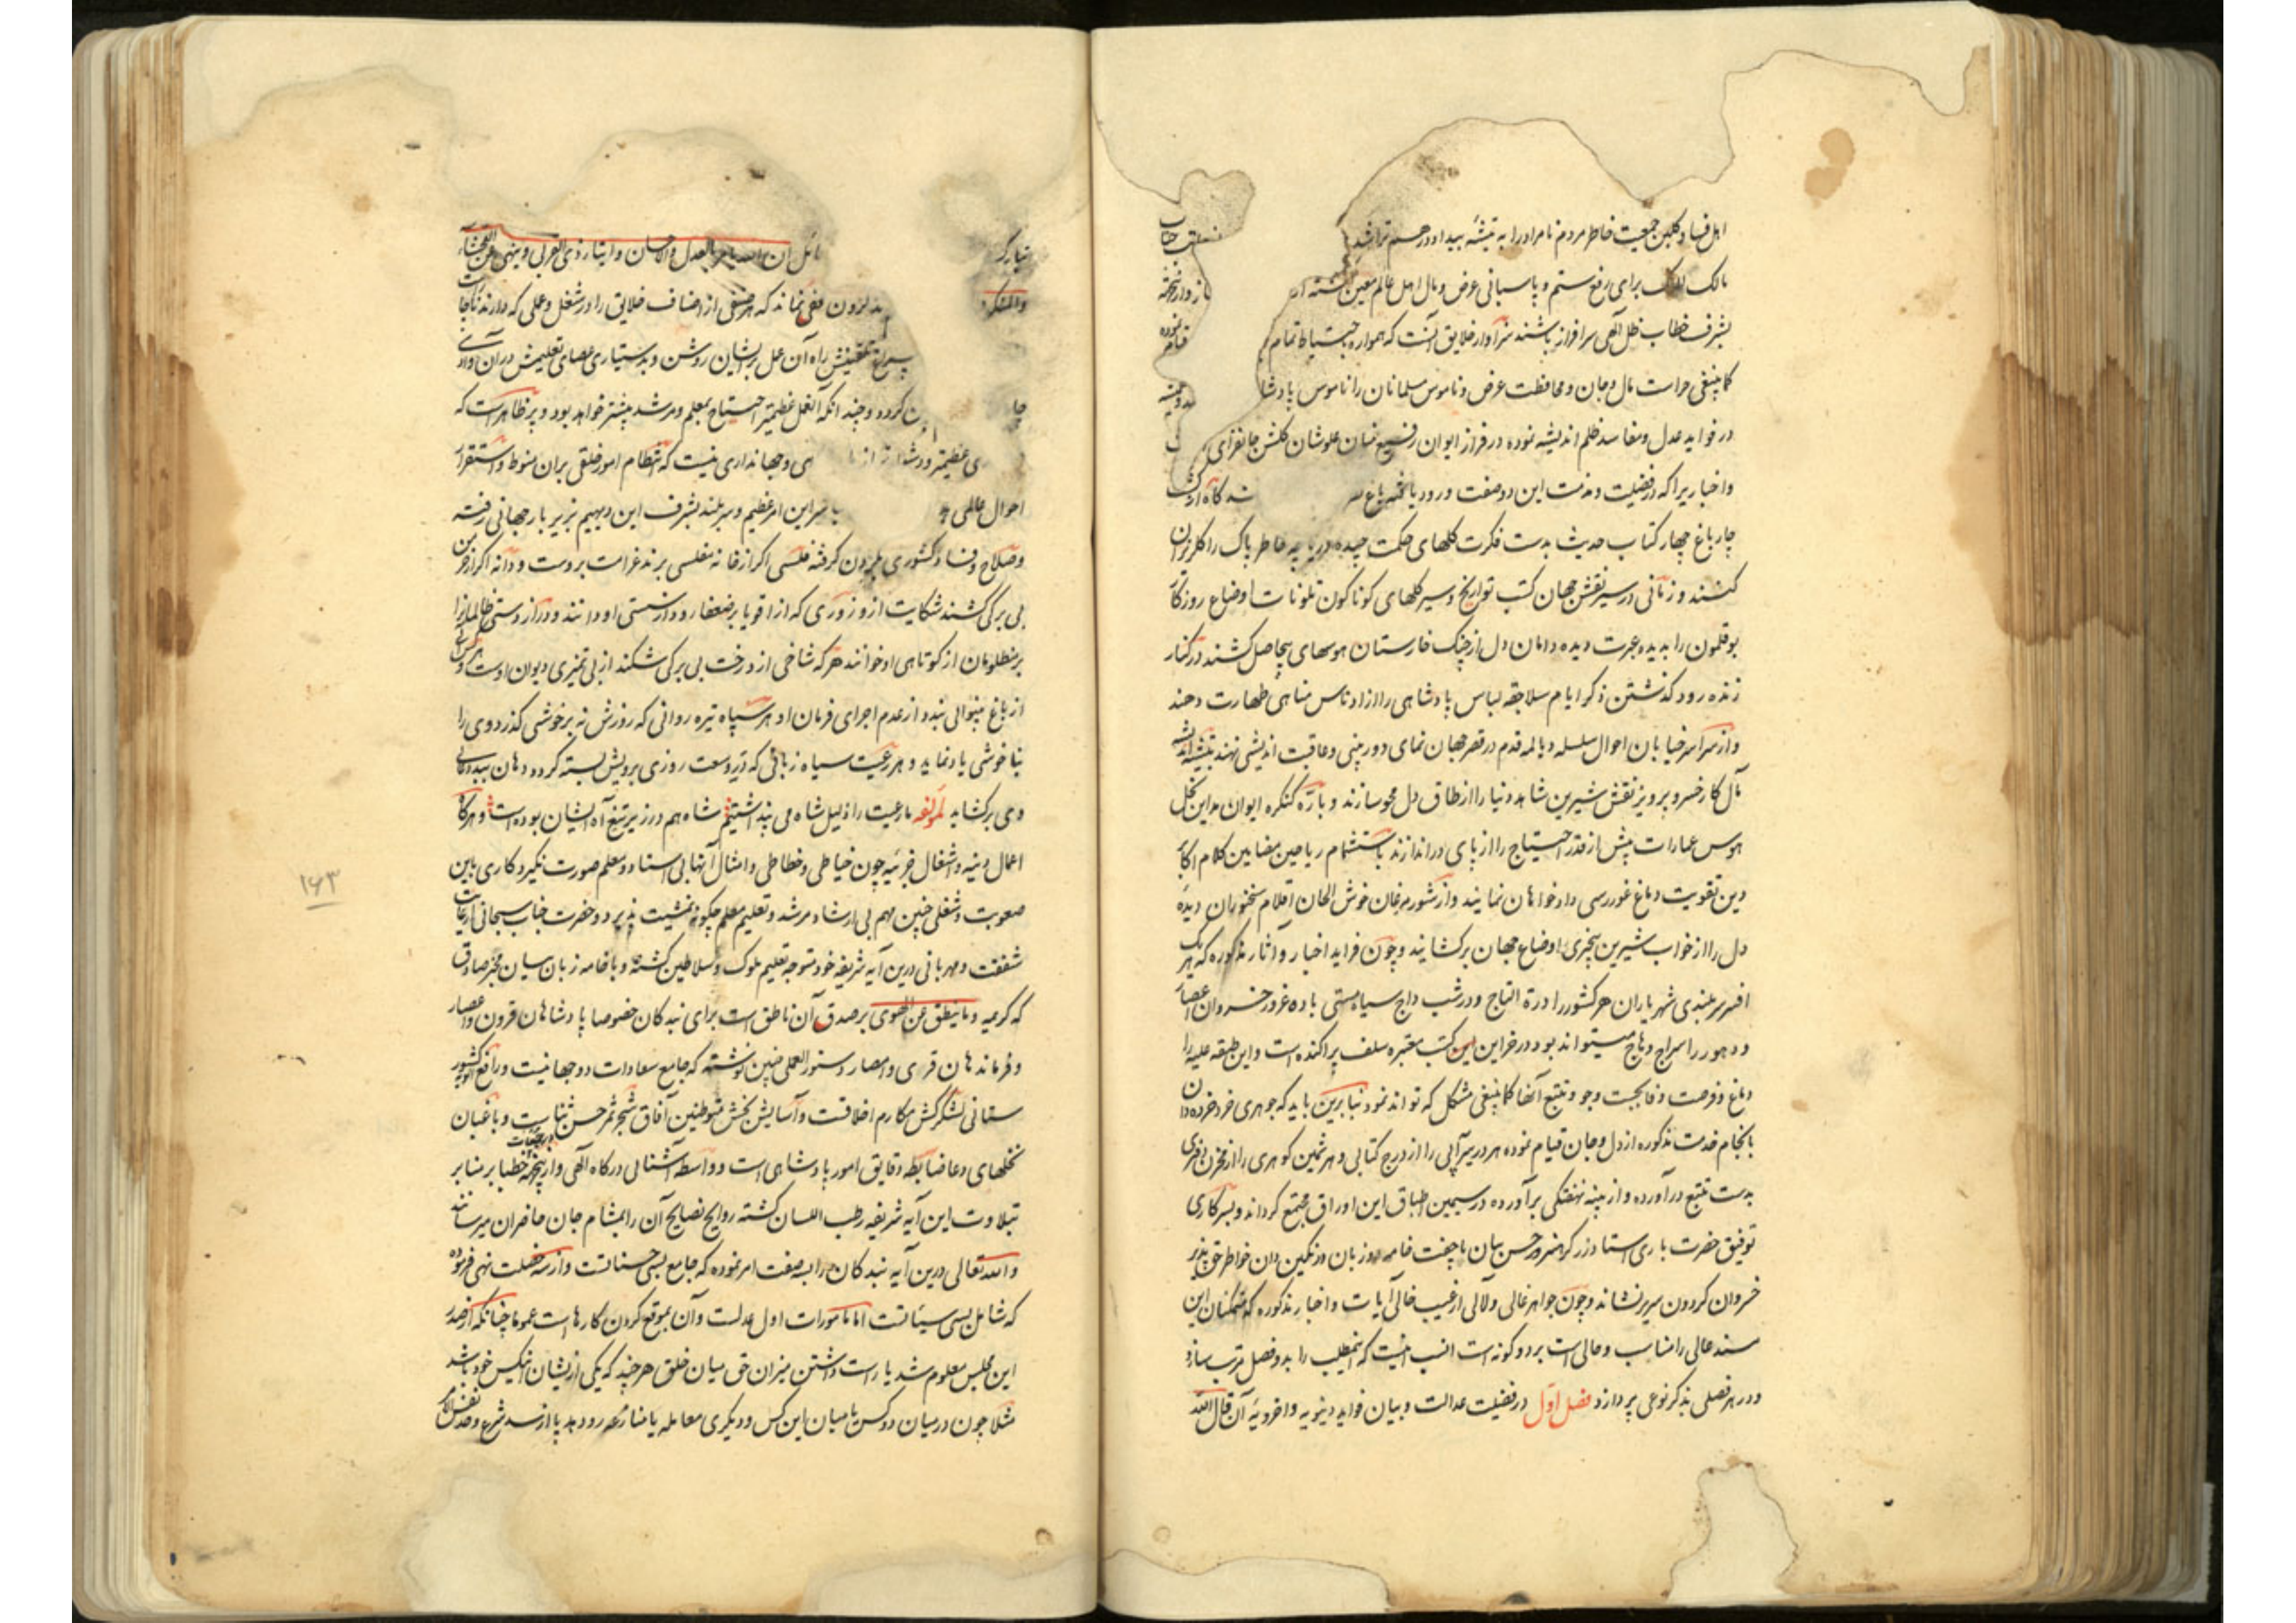 اهل فساد و گلبن جمعیت خاطر مردم نامراد را به تیشه بیداد در هم تراشد
مالک الملک برای رفع ستم و پاسبانی عرض و مال اهل عالم معین گشته
بشرف خطاب ظل الهی سرافراز باشند سزاوار خلایق آنست که همواره تمام
کما ینبغی حراست مال و جان و محافظت عرض و ناموس مسلمانان را ناموس پادشا
در فواید عدل و مفاسد ظلم اندیشه نموده در فراز ایوان رفیع بنیان علوشان گلشن جانفزای
و اخباریرا که در فضیلت و مذمت این دو صفت ورود یافته باغ
چارباغ چهار کتاب حدیث بدست فکرت گلهای حکمت چیده خاطر پاک را
کنند و زمانی در سیر نقش جهان کتب تواریخ و سیر گلهای کوناکون تلونات اوضاع روزکار
بوقلمون را بدیده عبرت دیده دامان دل از چنک خارستان هوسهای بیحاصل کشند در کنار
زنده رود کذشتن ذکر ایام سلاجقه لباس پادشاهی را از ادناس مناهی طهارت دهند
و از سراسر خیابان احوال سلسله دیالمه قدم در قصر جهان نمای دوربینی و عاقبت اندیشی نهند
مآل کار خسرو پرویز نقش شیرین شاهد دنیا را از طاق دل محو سازند و باره کنکره ایوان
هوس عمارات پیش از قدر احتیاج را از پای دراندازند باستشمام ریاحین مضامین کلام اکابر
دین تقویت دماغ غوررسی دادخواهان نمایند و از شور مرغان خوش الحان اقلام سخنوران دیده
دل را از خواب شیرین بیخبری اوضاع جهان برکشایند و چون فراید اخبار و آثار مذکوره که هر یک
افسر سربلندی شهریاران هر کشور را درة التاج و در شب داج سیاه مستی باده غرور خسروان اعصار
و دهور را سراج وهاج میتواند بود در خزاین کتب معتبره سلف پراکنده است و این طبقه علیه را
دماغ و فرصت وفا بجست وجو و تتبع آنها کما ینبغی مشکل که تواند نمود بنابرین باید که جوهری خرد خرده دان
بانجام خدمت مذکوره از دل و جان قیام نموده هر در سیرآبی را از درج کتابی و هر ثمین کوهری را از مخزن
بدست تتبع درآورده و از نهفتکی برآورده در سیمین اطباق این اوراق مجتمع کرداند و بسرکاری
توفیق حضرت باری استاد زرکر حسن بیان خامه دو زبان در نکین دان خواطر حق پذیر
خسروان کردون سریر نشاند و چون جواهر غالی و لالی آیات و اخبار مذکوره که متمکنان این
مسند عالی را مناسب و حالی است بر دو کونه است انسب انیست که اینمطلب را بدو فصل مرتب سازد
و در هر فصلی بذکر نوعی پردازد فصل اول در فضیلت عدالت و بیان فواید دنیویه و اخرویه آن قال الله
تبارک ان الله یامر بالعدل والاحسان وایتاء ذی القربی وینهی عن الفحشاء
والمنکر مخفی نماند که هر صنفی از اصناف خلایق را در شغل و عملی که دارند
تلقینش راه آن عمل بریشان روشن و بدستیاری عصای تعلیمش در آن وادی
کردد و چند انکه آنعمل عظیمتر احتیاج بمعلم و مرشد بیشتر خواهد بود و پر ظاهر است که
ی عظیمتر و دشوارتر از هی و جهانداری نیست که انتظام امور خلقی بران منوط و استقرار
احوال عالمی این امر عظیم و سربلند بشرف این دیهیم بزیر بار جهانی رفته
و صلاح و فساد کشوری کرفته مفلسی اکر از خانه مفلسی برند غرامت بروست و دانه اکر از خرمن
بی برکی کشند شکایت ازو زوری که از اقویا بر ضعفا رود از سستی او دانند و درازدستی ظالمان را
بر مظلومان از کوتاهی او خوانند هر که شاخی از درخت بی برکی شکند از بی تمیزی دیوان اوست و هر کس
از باغ بینوائی از عدم اجرای فرمان او هر سپاه تیره روانی که روزش نه برخوشی کذرد وی را
بناخوشی یاد نماید و هر رعیت سیاه زبانی که در وسعت روزی برویش بسته کردد دهان ببددعائی
وی برکشاید لمؤلفه ما رعیت را ذلیل شاه می پنداشتیم شاه هم در زیر تیغ آه ایشان بوده است و هرکاه
اعمال دنیه و اشغال جزئیه چون خیاطی و خطاطی و امثال آنها بی استاد و معلم صورت نکیرد کاری باین
صعوبت و شغلی چنین مهم بی ارشاد مرشد و تعلیم معلم چکونه تمشیت پذیرد و حضرت جناب سبحانی از غایت
شفقت و مهربانی درین آیه شریفه خود متوجه تعلیم ملوک و سلاطین کشته و با خامه زبان مخبر صادق
که کریمه وما ینطق عن الهوی بر صدق آن ناطق است برای بندکان خصوصا پادشاهان قرون و اعصار
و فرماندهان قری و امصار دستورالعملی چنین نوشته که جامع سعادات دو جهانیست و رافع الویه کشور
ستانی لشکرکش مکارم اخلاقست و آسایش بخش متوطنین آفاق شجر ثمر حسن ثناست و باغبان
نخلهای دعا ضابطه دقایق امور پادشاهی است و واسطه آشنائی درکاه الهی و ازینجهة خطبا بر منابر
بتلاوت این آیه شریفه رطب اللسان کشته روایح نصایح آن را بمشام جان حاضران میرسانند
والله تعالی درین آیه بندکان را بسه صفت امر نموده که جامع بسی حسناتست و از سه خصلت نهی فرموده
که شامل بسی سیئاتست اما مامورات اول عدلست و آن بموقع کردن کارهاست عموما چنانکه از صدر
این مجلس معلوم شد یا راست داشتن میزان حق میان خلق هر چند که یکی ازیشان انکس خود باشد
مثلا چون درمیان دو کس یا میان این کس و دیکری معامله یا منازعه رو دهد پا از سد شرع و حد نفس الامر